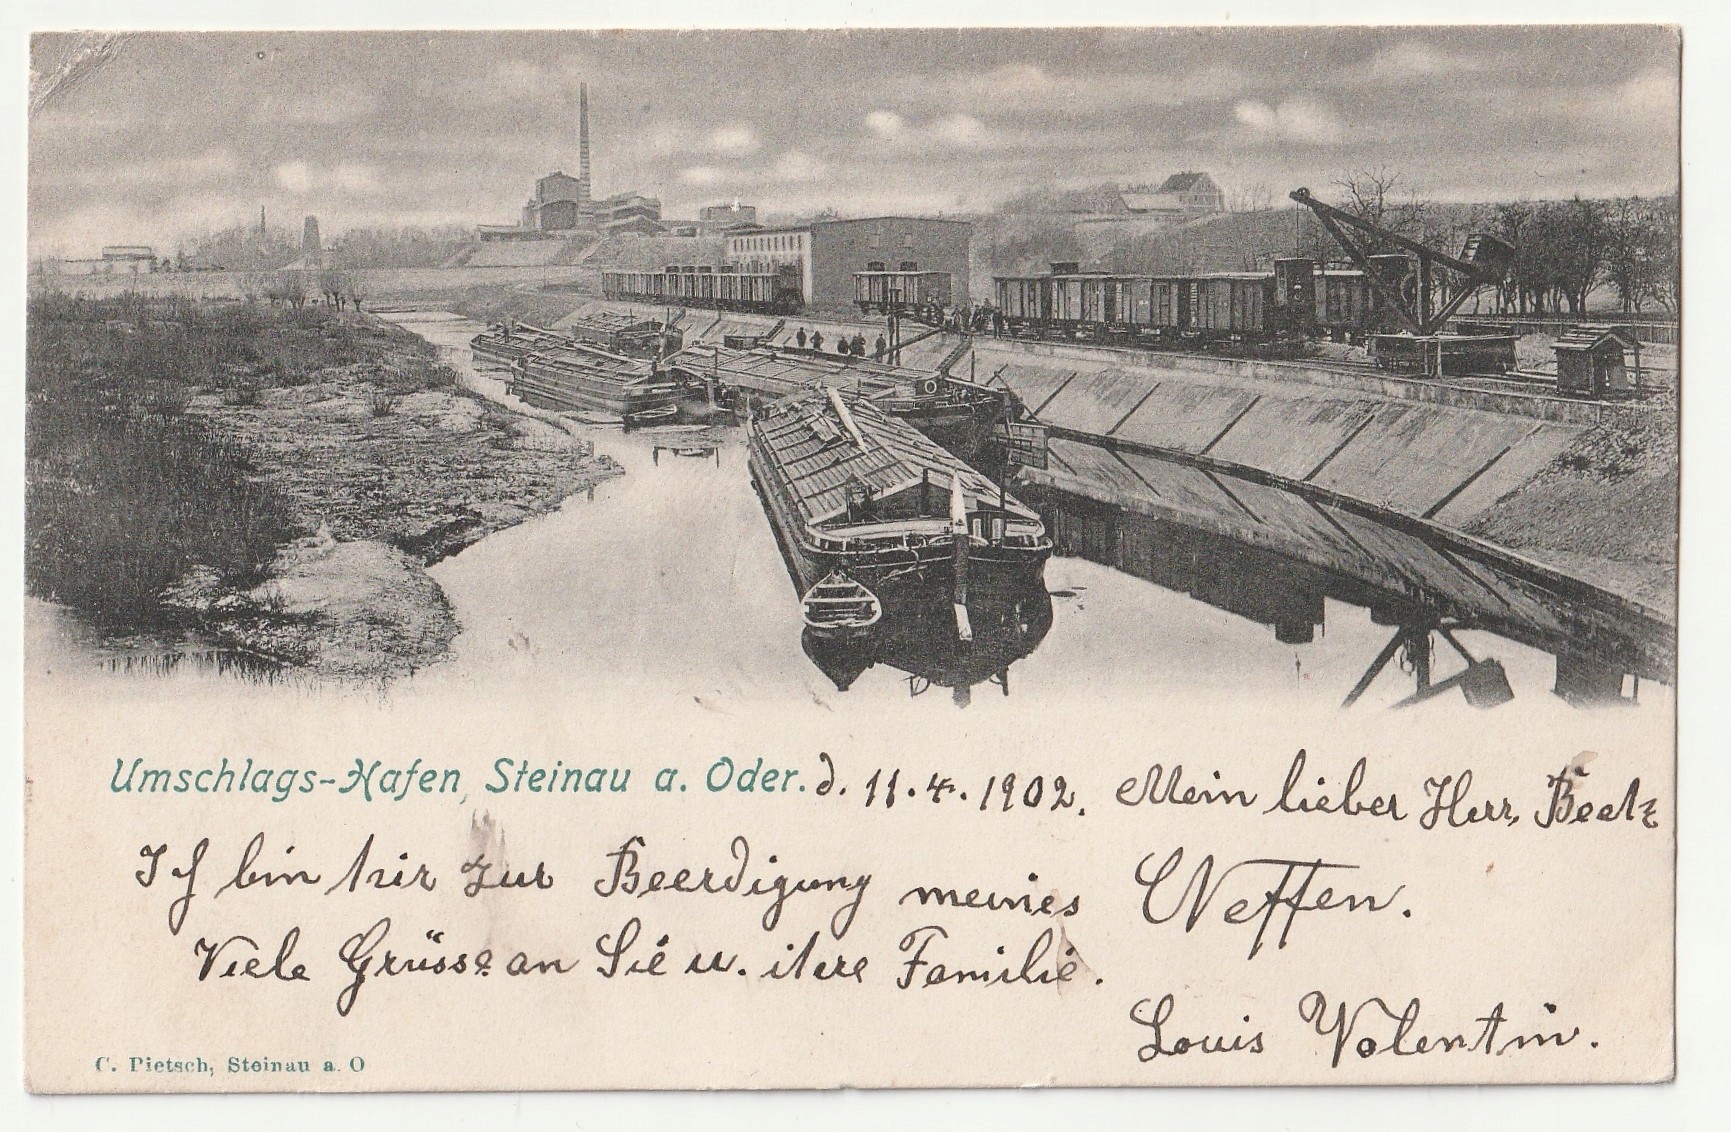 Umschlags-Hafen, Steinau a. Oder. d. 11.4.1902. Mein lieber Herr Beetz
Ich bin hir zur Beerdigung meines Neffen.
Viele Grüsse an Sie u. ihre Familie.
Louis Valentin.
C. Pietsch, Steinau a. O